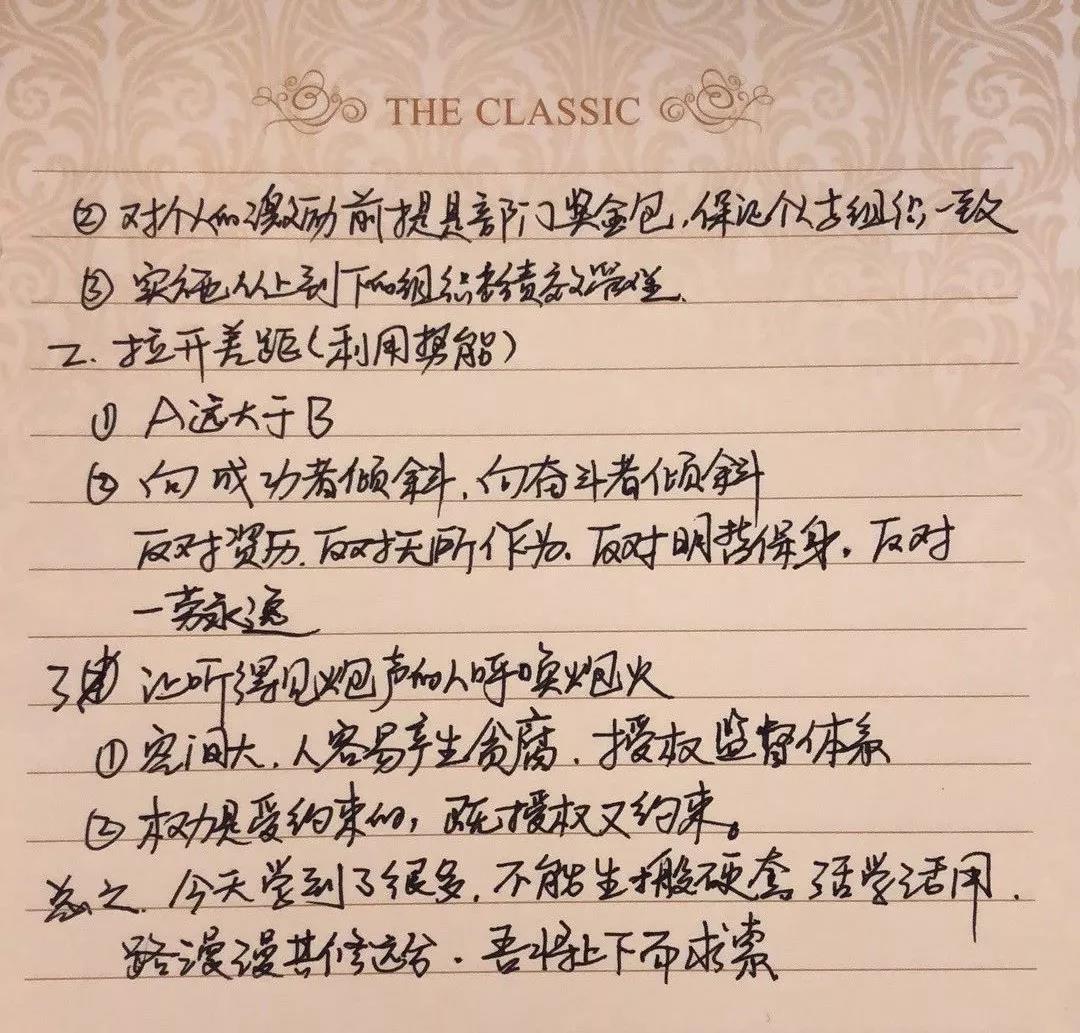 THE CLASSIC
② 对个人的激励前提是部门奖金包,保证个人与组织一致
③ 实施从上到下的组织绩效管理.
二.拉开差距(利用势能)
① A远大于B
② 向成功者倾斜,向奋斗者倾斜
反对资历.反对无所作为.反对明哲保身.反对
一劳永逸
3 让听得见炮声的人呼唤炮火
① 空间大.人容易产生贪腐.授权监督体系
② 权力是受约束的,既授权又约束。
总之.今天学到了很多.不能生搬硬套.活学活用.
路漫漫其修远兮.吾将上下而求索